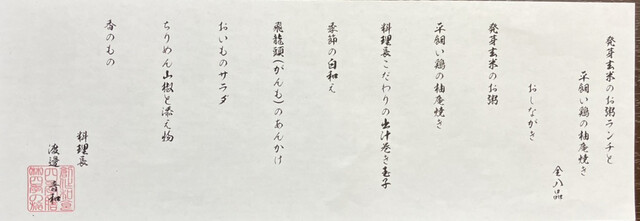 発芽玄米のお粥ランチと
平飼い鶏の柚庵焼き
おしながき
全八品
発芽玄米のお粥
平飼い鶏の柚庵焼き
料理長こだわりの出汁巻き玉子
季節の白和え
飛龍頭(がんも)のあんかけ
おいものサラダ
ちりめん山椒と添え物
香のもの
料理長
渡邊 吾和